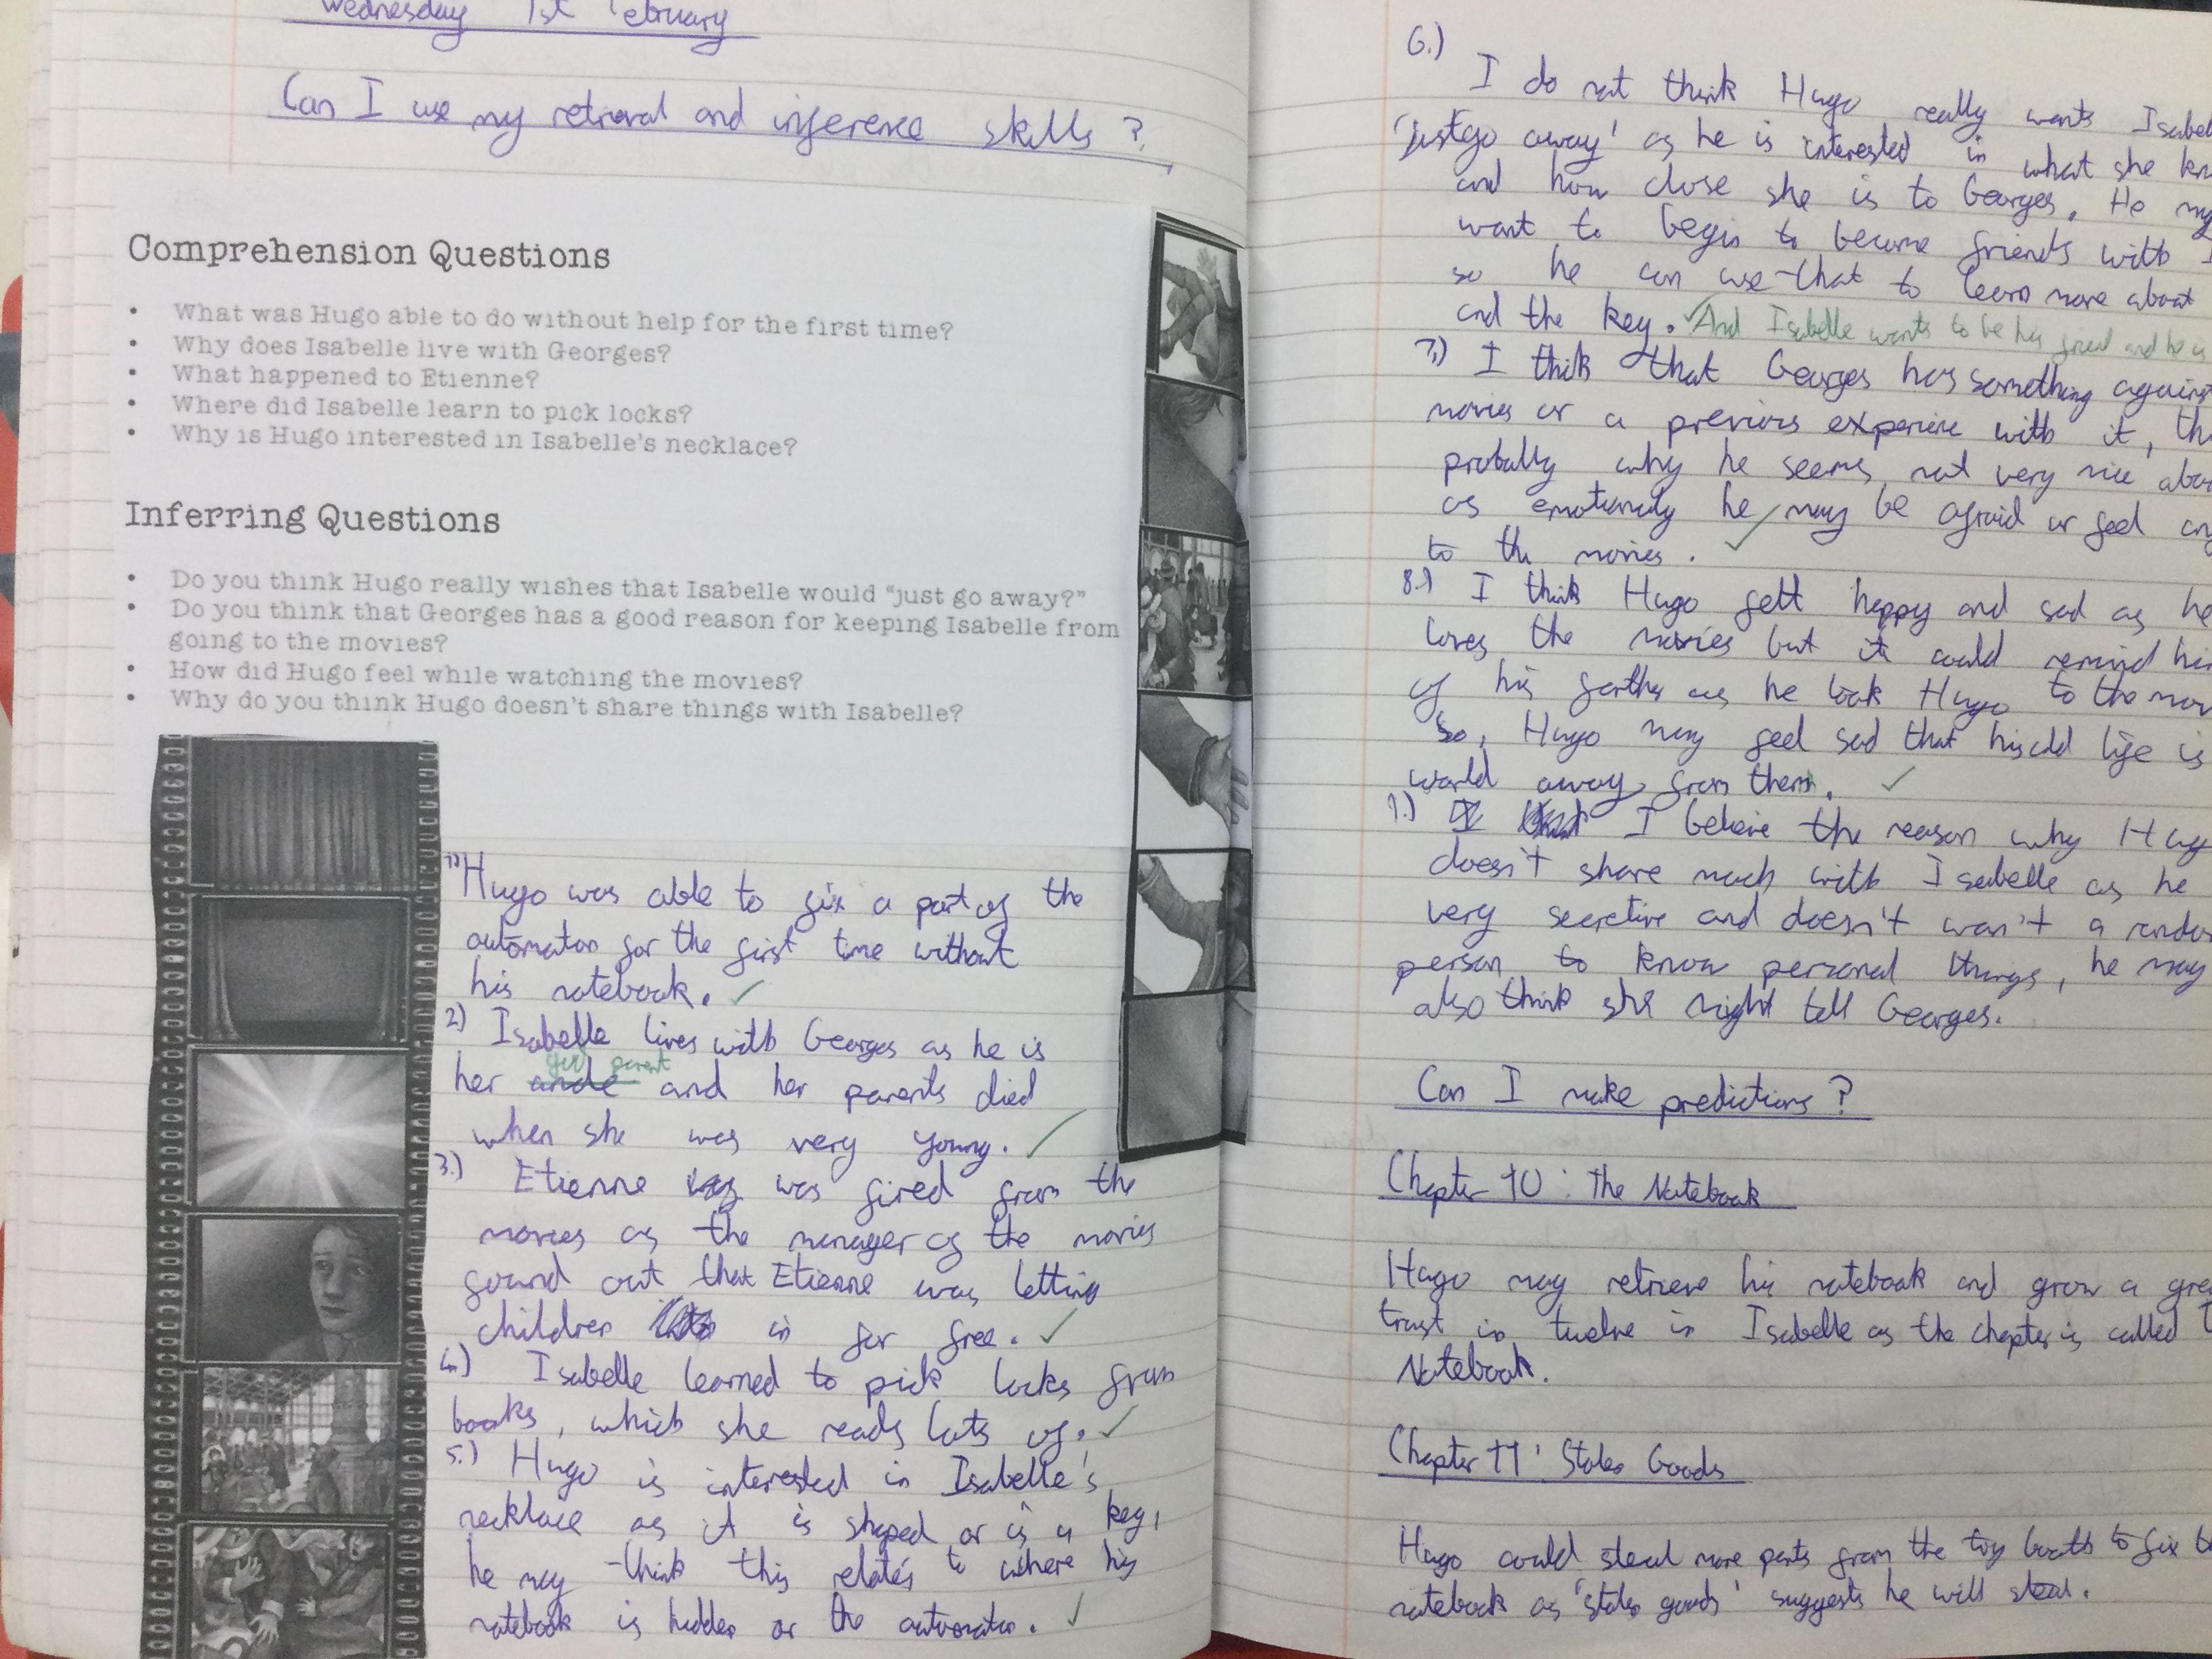 Wednesday 1st February
Can I use my retrieval and inference skills?
Comprehension Questions
• What was Hugo able to do without help for the first time?
• Why does Isabelle live with Georges?
• What happened to Etienne?
• Where did Isabelle learn to pick locks?
• Why is Hugo interested in Isabelle's necklace?
Inferring Questions
• Do you think Hugo really wishes that Isabelle would "just go away?"
• Do you think that Georges has a good reason for keeping Isabelle from
going to the movies?
• How did Hugo feel while watching the movies?
• Why do you think Hugo doesn't share things with Isabelle?
1) Hugo was able to fix a part of the
automaton for the first time without
his notebook.
2) Isabelle lives with Georges as he is
god parent
her uncle and her parents died
when she was very young.
3.) Etienne was fired from the
movies as the manager of the movies
found out that Etienne was letting
children in for free.
4.) Isabelle learned to pick locks from
books, which she reads lots of.
5.) Hugo is interested in Isabelle's
necklace as it is shaped or is a key,
he may think this relates to where his
notebook is hidden or the automaton.
6.)
I do not think Hugo really wants Isabel
'just go away' as he is interested in what she kn
and how close she is to Georges. He my
want to begin to become friends with I
so he can use that to learn more about
and the key. And Isabelle wants to be his friend and he is
7.) I think that Georges has something against
movies or a previous experience with it, th
probably why he seems not very nice abo
as emotionally he may be afraid or feel ang
to the movies.
8.) I think Hugo felt happy and sad as he
loves the movies but it could remind him
of his farther as he took Hugo to the mov
so, Hugo may feel sad that his old life is
world away from them.
9.) I I believe the reason why Hug
doesn't share much with Isabelle as he
very secretive and doesn't wan't a rando
person to know personal things, he may
also think she might tell Georges.
Can I make predictions?
Chapter 10: The Notebook
Hugo may retrieve his notebook and grow a gre
trust in twelve in Isabelle as the chapter is called T
Notebook.
Chapter 11: Stolen Goods
Hugo could steal more parts from the toy booth to fix t
notebook as 'stolen goods' suggests he will steal.